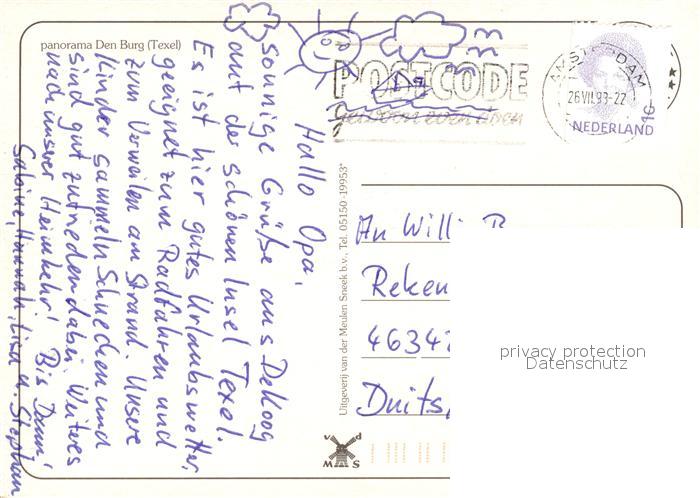 panorama Den Burg (Texel)
Hallo Opa,
sonnige Grüße aus DeKoog
auf der schönen Insel Texel.
Es ist hier gutes Urlaubswetter,
geeignet zum Radfahren und
zum Verweilen am Strand. Unsere
Kinder sammeln Schnecken und
sind gut zufrieden dabei. Weiteres
nach unserer Heimkehr! Bis Dann!
Sabine, Hannah, Lisa u. Stephan
Uitgeverij van der Meulen Sneek b.v., Tel. 05150-19953*
POSTCODE
AMSTERDAM
26 VII.93-22
NEDERLAND
An Willi
Reken
4634
Duits
v d
M S
privacy protection
Datenschutz